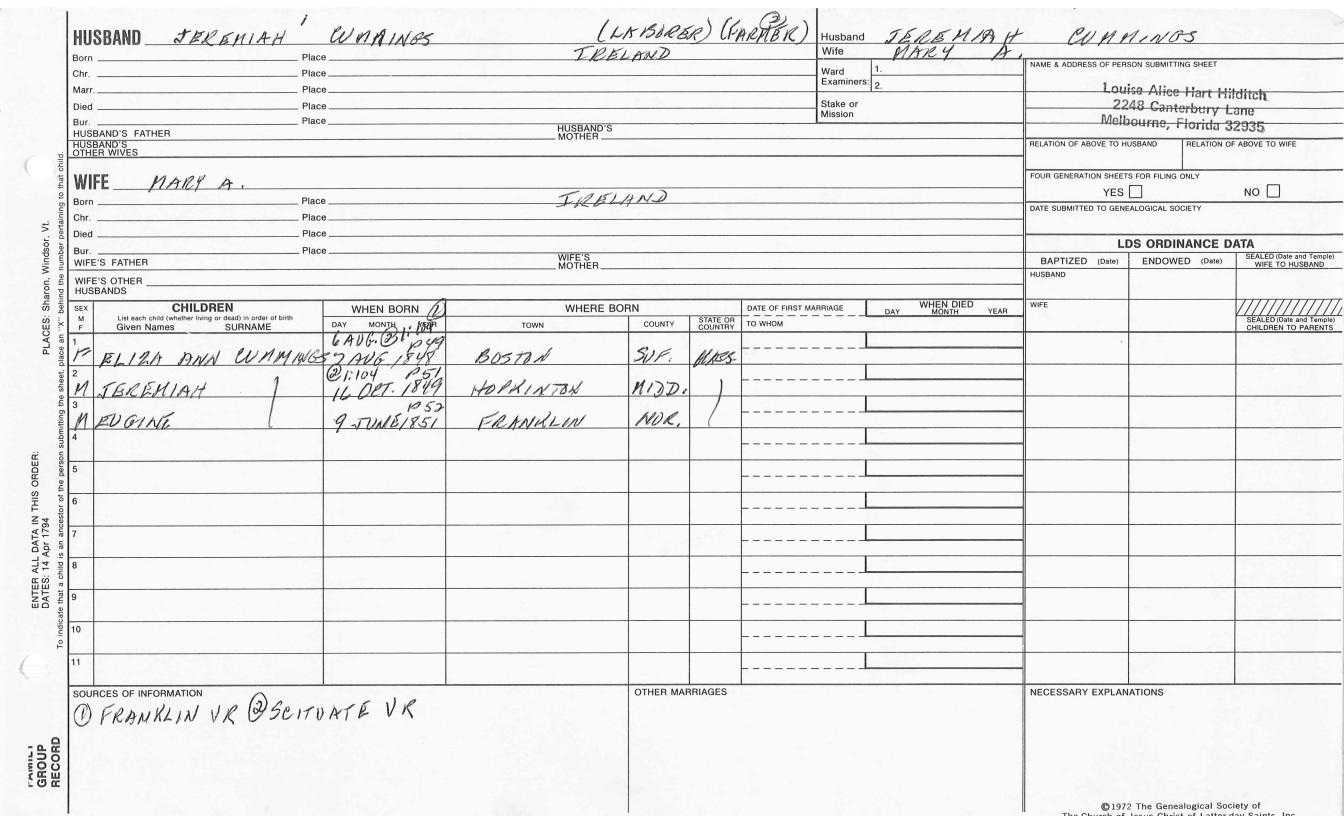 HUSBAND JEREMIAH CUMMINGS (LABORER) (FARMER) ②
Born Place IRELAND
Chr. Place
Marr. Place
Died Place
Bur. Place
HUSBAND'S FATHER HUSBAND'S MOTHER
HUSBAND'S OTHER WIVES
Husband JEREMIAH CUMMINGS
Wife MARY A.
Ward Examiners: 1.
2.
Stake or Mission
NAME & ADDRESS OF PERSON SUBMITTING SHEET
Louise Alice Hart Hilditch
2248 Canterbury Lane
Melbourne, Florida 32935
RELATION OF ABOVE TO HUSBAND RELATION OF ABOVE TO WIFE
FOUR GENERATION SHEETS FOR FILING ONLY
YES NO
DATE SUBMITTED TO GENEALOGICAL SOCIETY
WIFE MARY A.
Born Place IRELAND
Chr. Place
Died Place
Bur. Place
WIFE'S FATHER WIFE'S MOTHER
WIFE'S OTHER HUSBANDS
LDS ORDINANCE DATA
BAPTIZED (Date) ENDOWED (Date) SEALED (Date and Temple) WIFE TO HUSBAND
HUSBAND
WIFE
SEALED (Date and Temple) CHILDREN TO PARENTS
SEX M F CHILDREN WHEN BORN ① WHERE BORN DATE OF FIRST MARRIAGE WHEN DIED
List each child (whether living or dead) in order of birth
Given Names SURNAME DAY MONTH YEAR TOWN COUNTY STATE OR COUNTRY TO WHOM DAY MONTH YEAR
6 AUG. ② 1:104
P49
1 F ELIZA ANN CUMMINGS 7 AUG 1848 BOSTON SUF. MASS.
② 1:104 P51
2 M JEREMIAH 16 OCT. 1849 HOPKINTON MIDD.
P52
3 M EUGINE 9 JUNE 1851 FRANKLIN NOR.
4
5
6
7
8
9
10
11
SOURCES OF INFORMATION
① FRANKLIN VR ② SCITUATE VR
OTHER MARRIAGES
NECESSARY EXPLANATIONS
©1972 The Genealogical Society of
The Church of Jesus Christ of Latter-day Saints, Inc.
PLACES: Sharon, Windsor, Vt.
To indicate that a child is an ancestor of the person submitting the sheet, place an "X" behind the number pertaining to that child.
ENTER ALL DATA IN THIS ORDER:
DATES: 14 Apr 1794
FAMILY GROUP RECORD